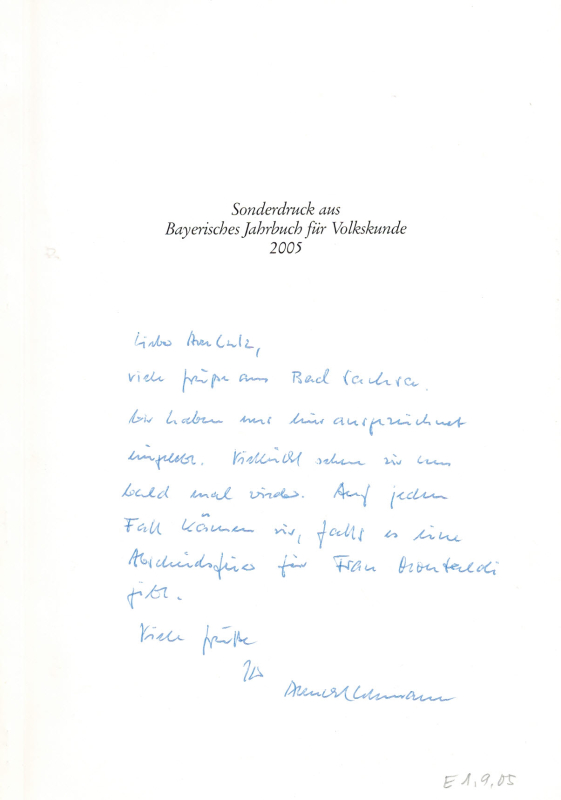 Sonderdruck aus
Bayerisches Jahrbuch für Volkskunde
2005
Lieber Herr Lutz,
viele Grüße aus Bad Sachsa.
Wir haben uns hier ausgezeichnet
eingelebt. Vielleicht sehen wir uns
bald mal wieder. Auf jeden
Fall kämen wir, falls es eine
Abschiedsfeier für Frau
gibt.
Viele Grüße
Ihr
E 1.9.05